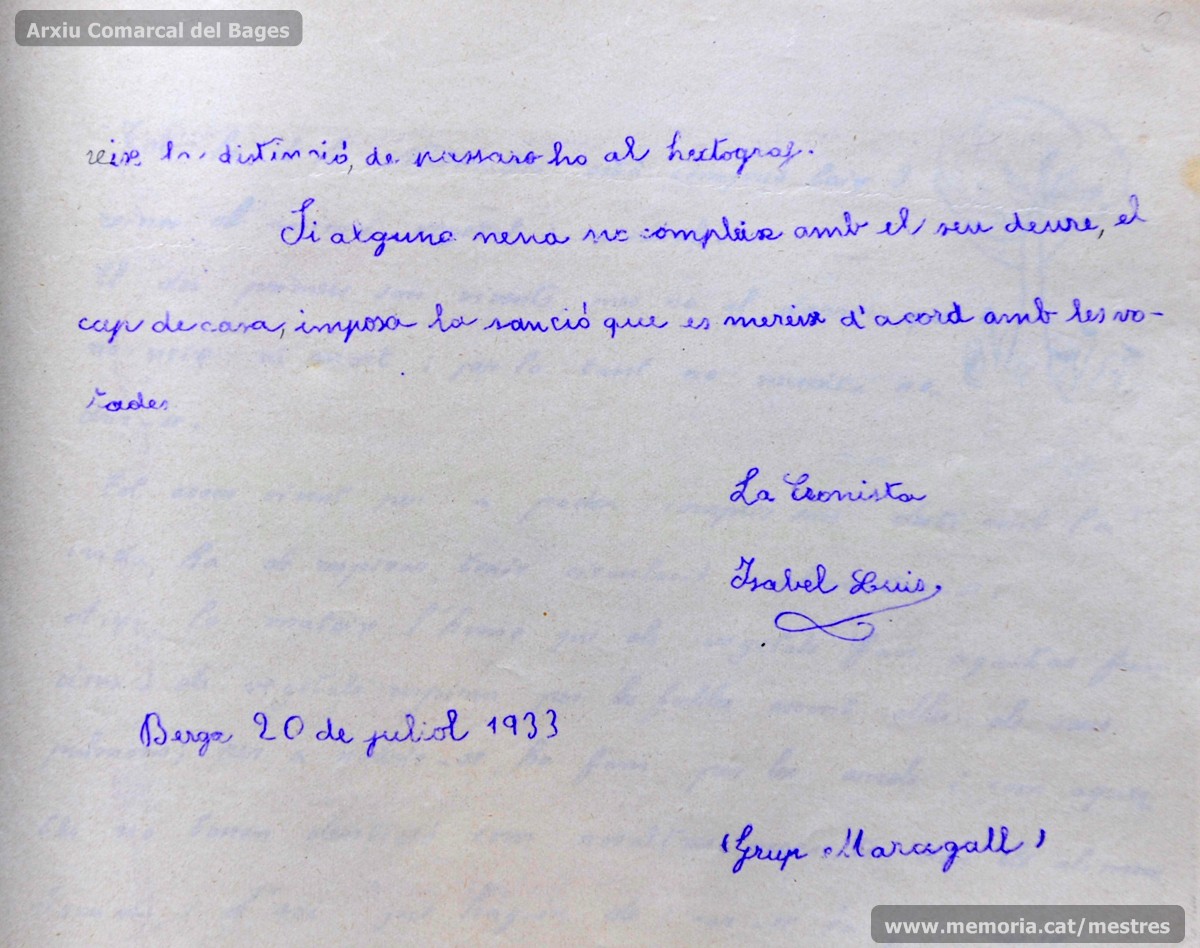 Arxiu Comarcal del Bages
reix la distinció, de passaro ho al hectograf.
Si alguna nena no compleix amb el seu deure, el
cap de casa, imposa la sanció que es mereix d'acord amb les vo-
tades
La Cronista
Isabel Luis
Berga 20 de juliol 1933
"Grup Maragall"
www.memoria.cat/mestres